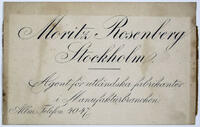 Moritz Rosenberg
Stockholm
Agent för utländska fabrikanter
i Manufakturbranchen.
Allm. Telefon 4047.